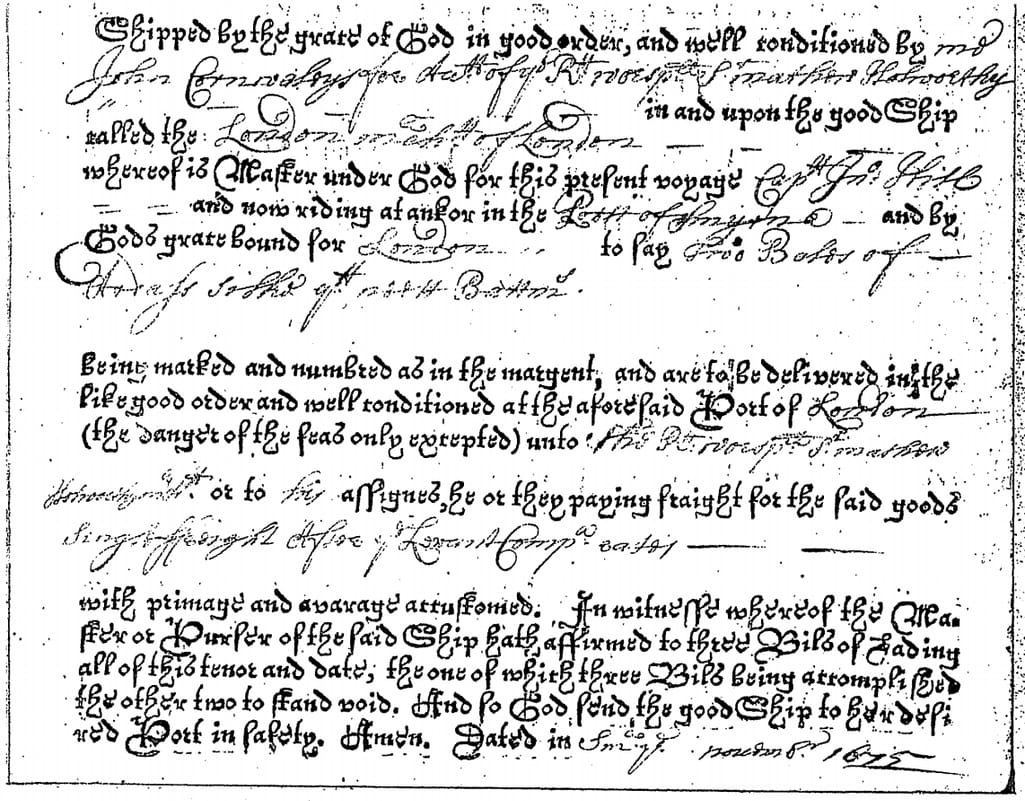 Shipped by the grace of God in good order, and well conditioned by me
John Cornwaleys for Acctt of ye Rt worspll Sr mathew Holworthy
in and upon the good Ship
called the London mcht of London
whereof is Master under God for this present voyage Capt Jno: Hill
and now riding at ankor in the Port of Smyrna and by
Gods grace bound for London to say Two Bales of
Ardass Silke
being marked and numbred as in the margent, and are to be delivered in the
like good order and well conditioned at the aforesaid Port of London
(the danger of the seas only excepted) unto the Rt worspll Sr mathew
Holworthy or to his assignes, he or they paying fraight for the said goods
Single ffreight as per ye Levant Compa rates
with primage and avarage accustomed. In witnesse whereof the Ma-
ster or Purser of the said Ship hath affirmed to three Bils of Lading
all of this tenor and date, the one of which three Bils being accomplished
the other two to stand void. And so God send the good Ship to her desi
red Port in safety. Amen. Dated in novembr. 1675